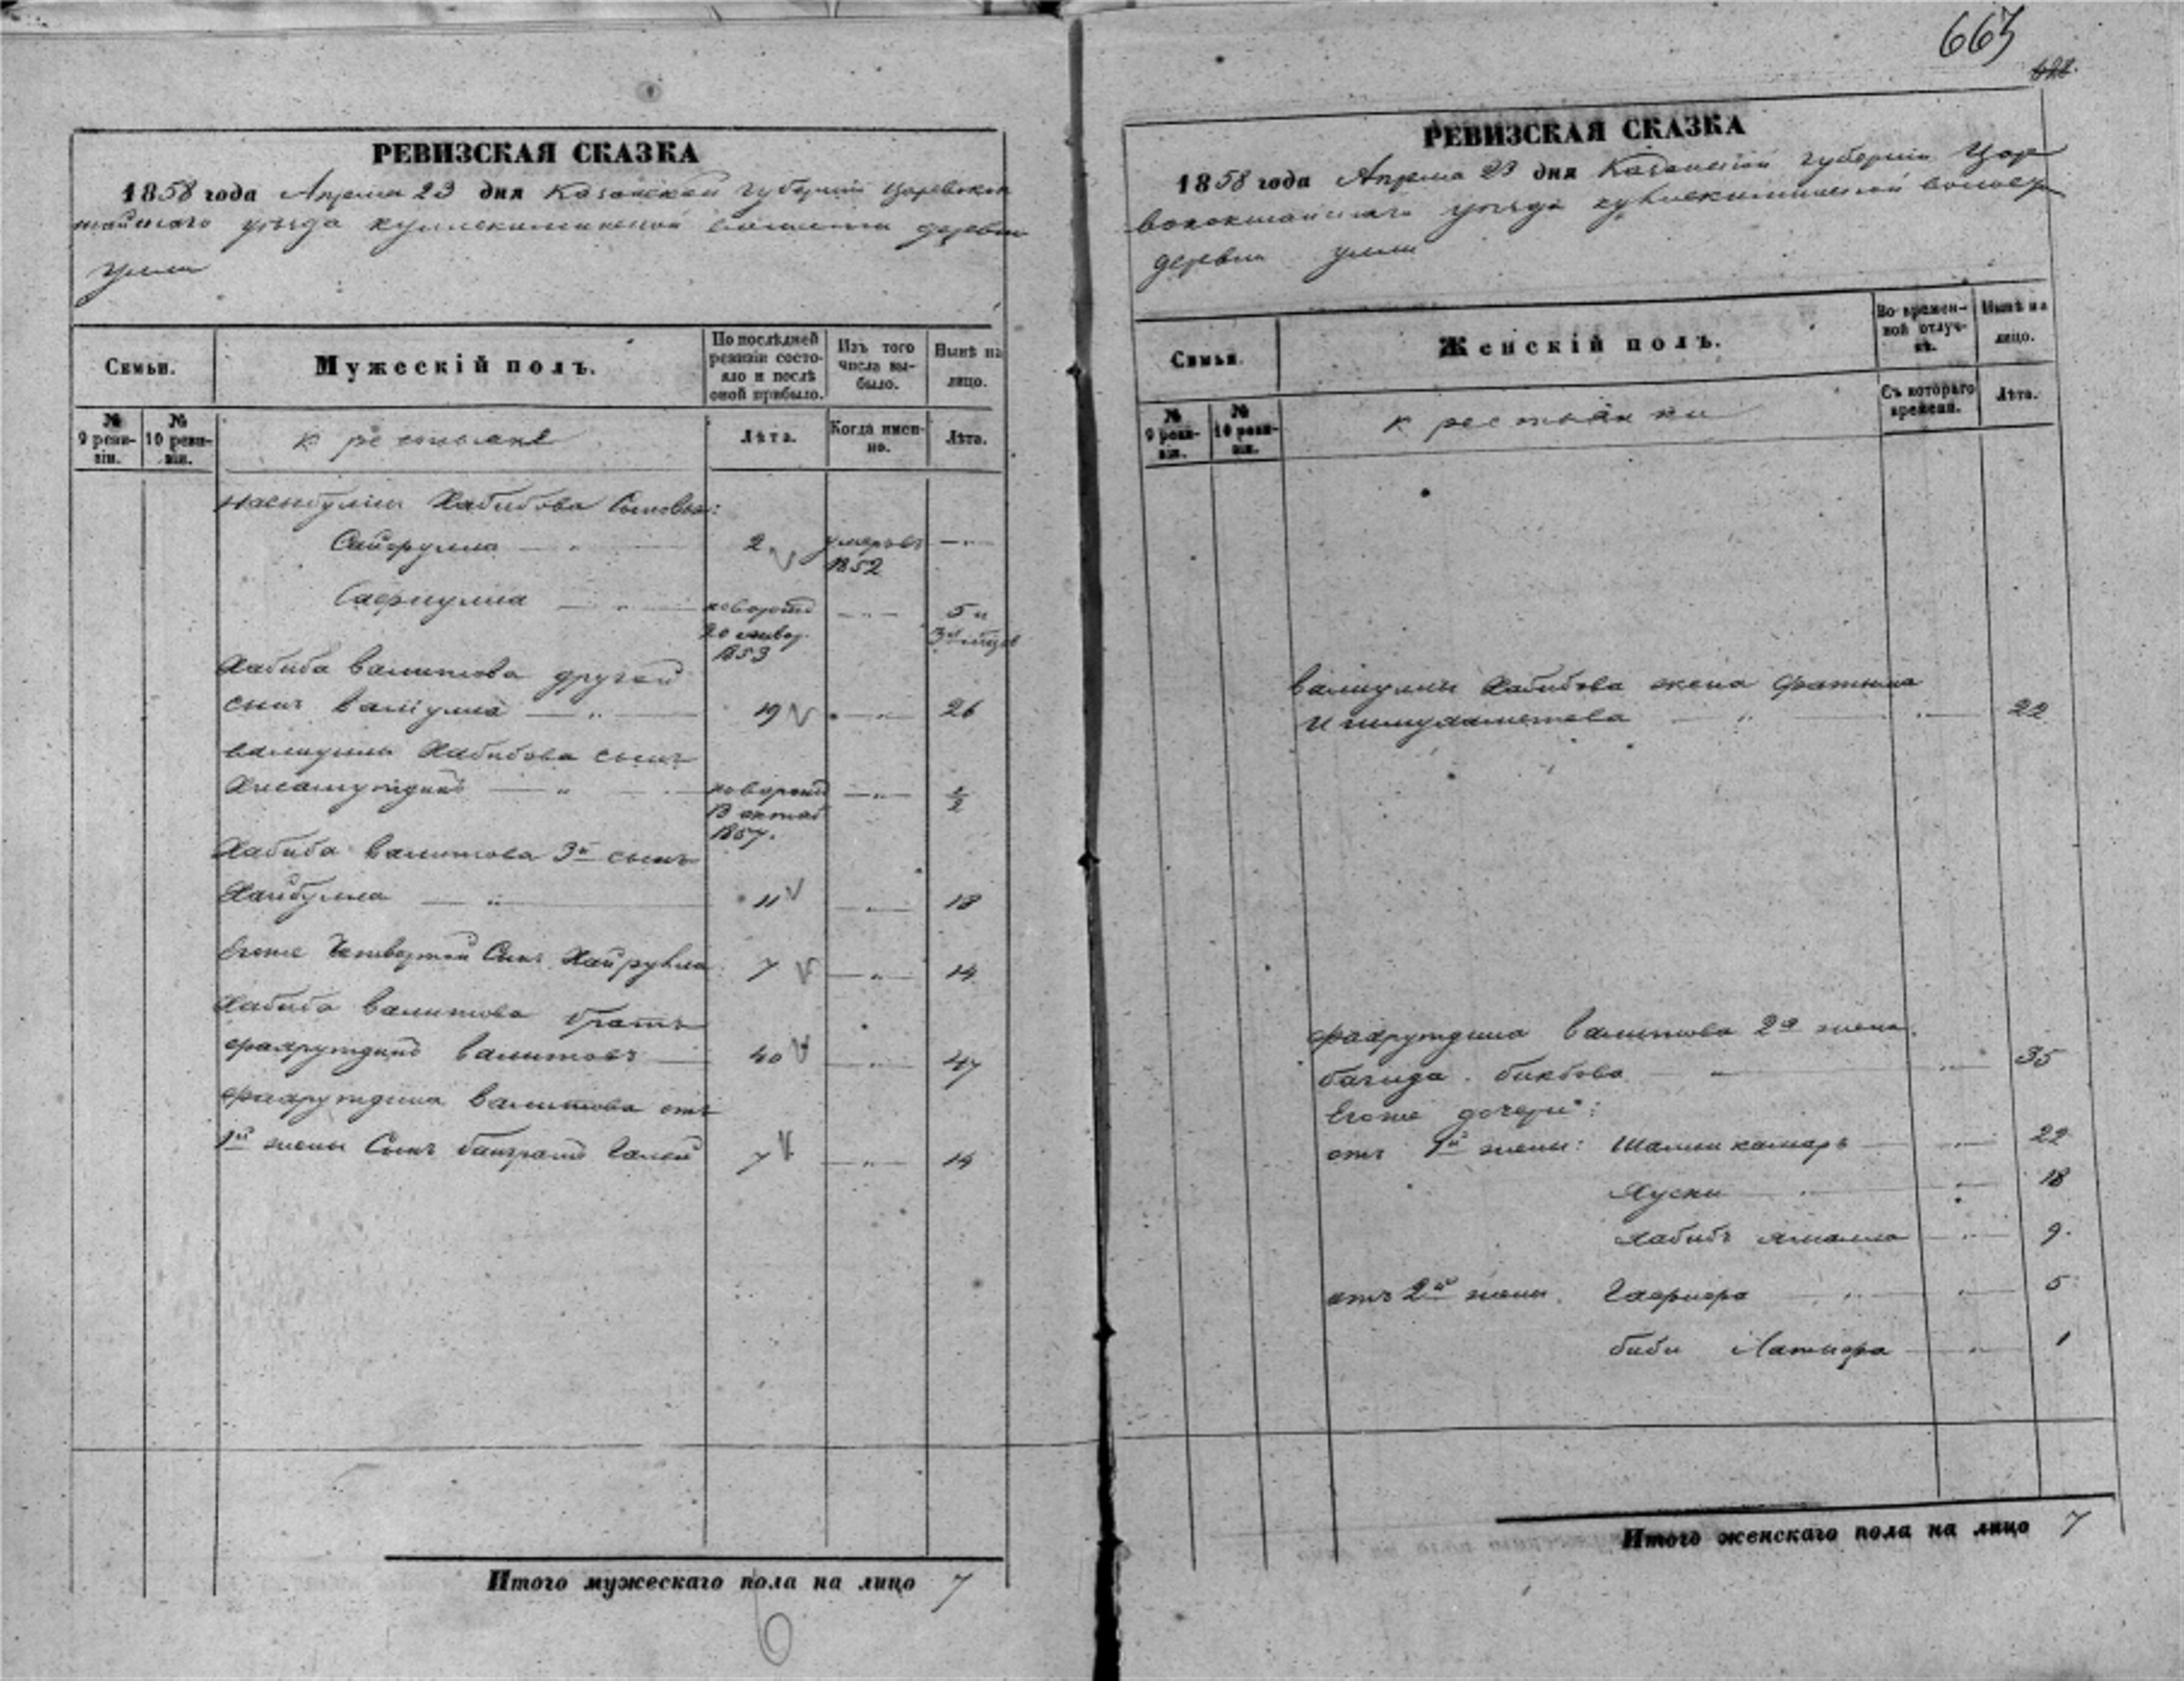 665
622.
РЕВИЗСКАЯ СКАЗКА
1858 года Апреля 23 дня Казанской губерніи Царевокок
шайскаго уезда волости деревни
РЕВИЗСКАЯ СКАЗКА
1858 года Апреля 23 дня Казанской губерніи Царе
вококшайскаго уезда волости
деревни
Семьи.
Мужескій полъ.
По послѣдней ревизіи состояло и послѣ оной прибыло.
Изъ того числа выбыло.
Нынѣ на лицо.
№ 9 ревизіи.
№ 10 ревизіи.
крестьяне
Лѣта.
Когда именно.
Лѣта.
Насыбуллы Хабибова Сыновья:
Сайфулла — " — 2 умеръ въ 1852 — " —
Сафиулла — " — новорожд 20 январ. 1853 — " — 5 и 3 мѣсяцов
Хабиба Валитова другой
сынъ Валіулла — " — 19 — " — 26
Валиуллы Хабибова сынъ
Хисамутдинъ — " — новорожд 13 октяб 1857. — " — 1/2
Хабиба Валитова 3й сынъ
Хайбулла — " — 11 — " — 18
Егоже Четвертой Сынъ Хайрулла 7 — " — 14
Хабиба Валитова братъ
Фахрутдинъ Валитовъ — 40 — " — 47
Фахрутдина Валитова отъ
1й жены Сынъ Галей 7 — " — 14
Итого мужескаго пола на лицо 7
6
Семьи.
Женскій полъ.
Во временной отлучкѣ.
Нынѣ на лицо.
№ 9 ревизіи.
№ 10 ревизіи.
крестьянки
Съ котораго времени.
Лѣта.
Валиуллы Хабибова жена Фатыма
Ишмухаметева — " — 22
Фахрутдина Валитова 2я жена
Багида Бикбова — " — 35
Егоже дочери:
отъ 1й жены: Шамсикамаръ — " — 22
Хусни — " — 18
Хабибъ — " — 9
отъ 2й жены. Гафифа — " — 5
Биби Латифа — " — 1
Итого женскаго пола на лицо 7